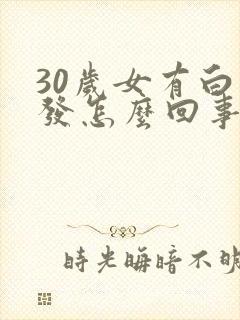 30歲女有白
發怎麼回事
時光晦暗不明